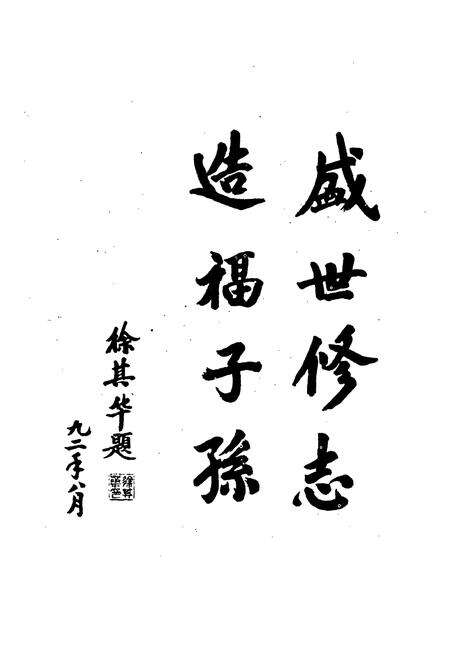 盛世修志
造福子孫
徐其华題
九二年八月